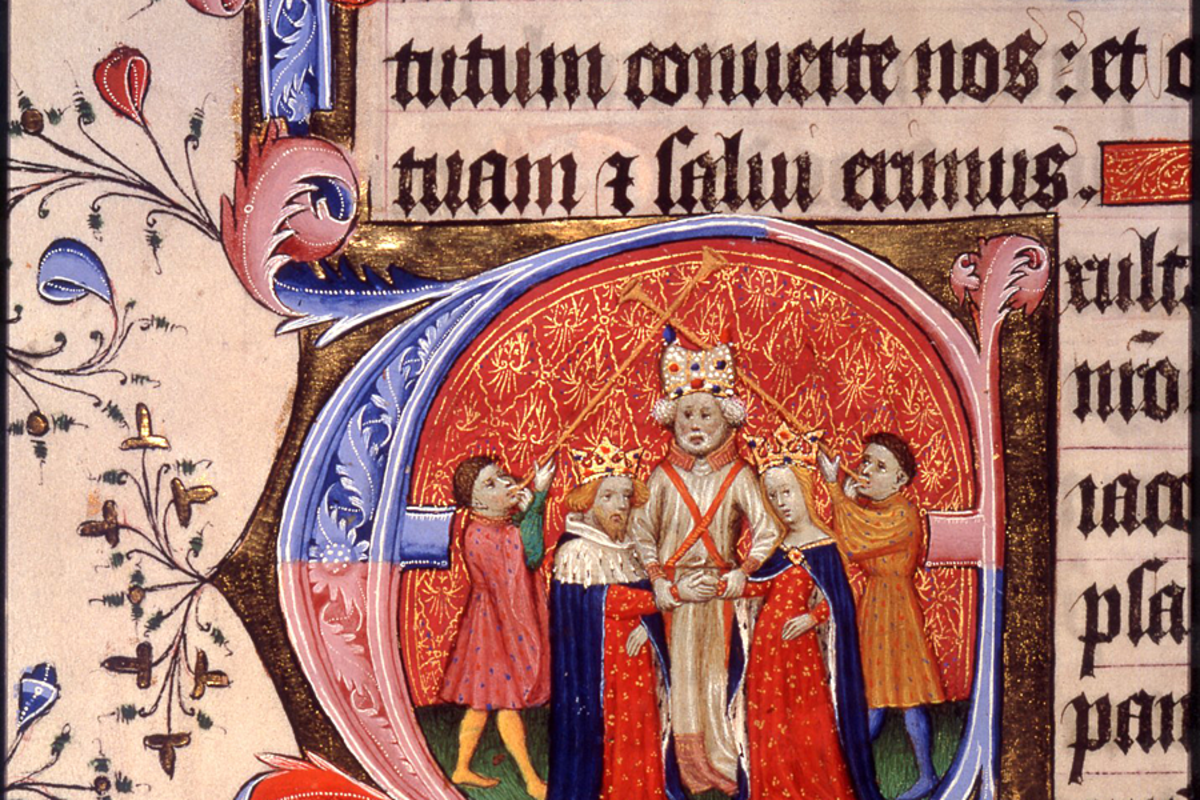 tutum conuerte nos : et o
tuam ⁊ salui erimus.
xult
nr̄o
iaco
psa
pan